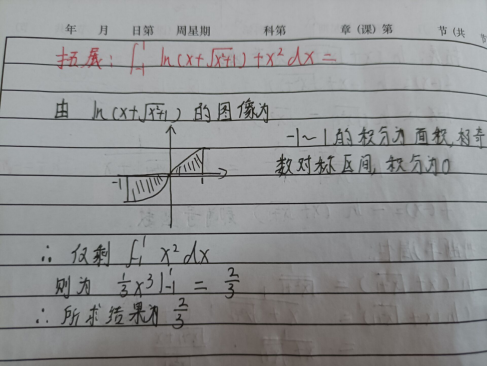 年 月 日第 周星期 科第 章(课)第 节(共
拓展: ∫₋₁¹ ln(x+√(x²+1))+x²dx=
由 ln(x+√(x²+1)) 的图像为
-1~1的积分为面积,
数对称区间,积分为0
-1 1
∴ 仅剩 ∫₋₁¹ x²dx
则为 ⅓x³|₋₁¹ = ⅔
∴ 所求结果为 ⅔